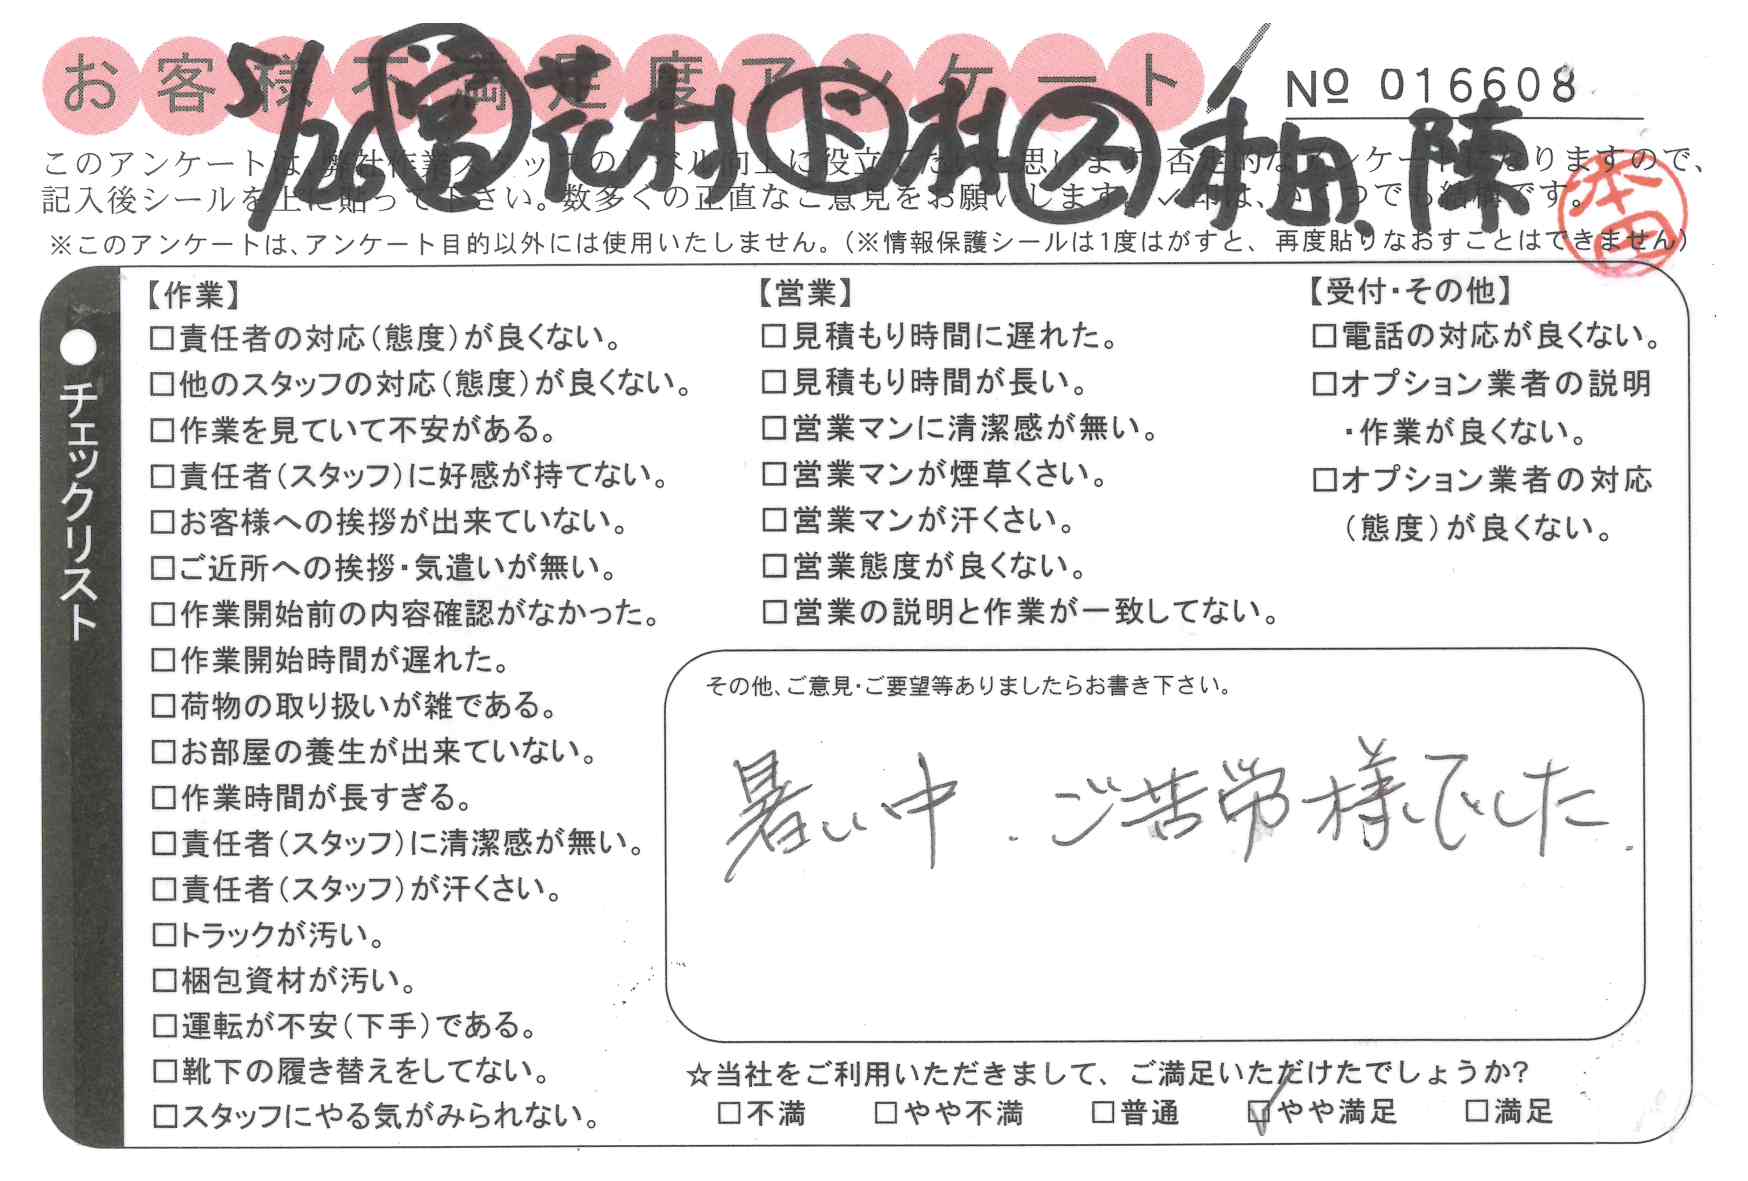 お客様不満足度アンケート
№ 016608
5/26 営 花村 下 林 ス 和田、陳
このアンケートは、弊社作業スタッフのレベル向上に役立てたいと思います。否定的なアンケートになりますので、
記入後シールを上に貼って下さい。数多くの正直なご意見をお願いします。✓印は、いくつでも結構です。
本田
※このアンケートは、アンケート目的以外には使用いたしません。(※情報保護シールは1度はがすと、再度貼りなおすことはできません)
●チェックリスト
【作業】
□責任者の対応(態度)が良くない。
□他のスタッフの対応(態度)が良くない。
□作業を見ていて不安がある。
□責任者(スタッフ)に好感が持てない。
□お客様への挨拶が出来ていない。
□ご近所への挨拶・気遣いが無い。
□作業開始前の内容確認がなかった。
□作業開始時間が遅れた。
□荷物の取り扱いが雑である。
□お部屋の養生が出来ていない。
□作業時間が長すぎる。
□責任者(スタッフ)に清潔感が無い。
□責任者(スタッフ)が汗くさい。
□トラックが汚い。
□梱包資材が汚い。
□運転が不安(下手)である。
□靴下の履き替えをしてない。
□スタッフにやる気がみられない。
【営業】
□見積もり時間に遅れた。
□見積もり時間が長い。
□営業マンに清潔感が無い。
□営業マンが煙草くさい。
□営業マンが汗くさい。
□営業態度が良くない。
□営業の説明と作業が一致してない。
【受付・その他】
□電話の対応が良くない。
□オプション業者の説明
・作業が良くない。
□オプション業者の対応
(態度)が良くない。
その他、ご意見・ご要望等ありましたらお書き下さい。
暑い中、ご苦労様でした.
☆当社をご利用いただきまして、ご満足いただけたでしょうか?
□不満 □やや不満 □普通 ☑やや満足 □満足